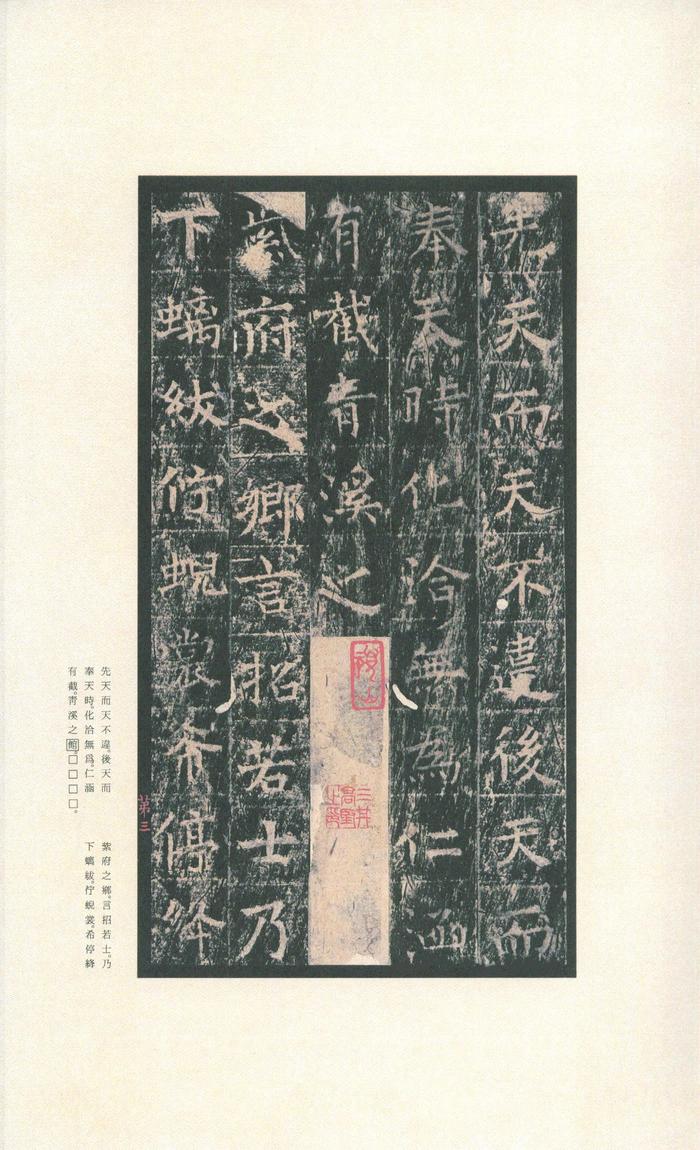 先天而天不違後天而
奉天時化洽無為仁涵
有截青溪之
紫府之鄉言招若士乃
下螭紱佇蜺裳希停絳
第三
先天而天不違。後天而
奉天時。化洽無爲。仁涵
有截。靑溪之館。□□□□。
紫府之鄉。言招若士。乃
下螭紱。佇蜺裳。希停絳